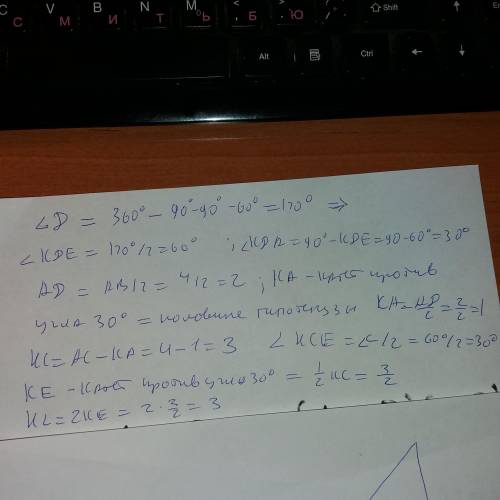 C V B N M < >
С М И Т Ь Б Ю ⇧Shift
Alt Ctrl
∠D = 360° - 90° - 90° - 60° = 120° ⇒
∠KDE = 120°/2 = 60° ; ∠KDA = 90° - KDE = 90 - 60° = 30°
AD = AB/2 = 4/2 = 2 ; KA - катет против
угла 30° = половине гипотенузы KA = AD/2 = 2/2 = 1
KC = AC - KA = 4 - 1 = 3 ∠KCE = ∠C/2 = 60°/2 = 30°
KE - катет против угла 30° = 1/2 KC = 3/2
KL = 2KE = 2 · 3/2 = 3